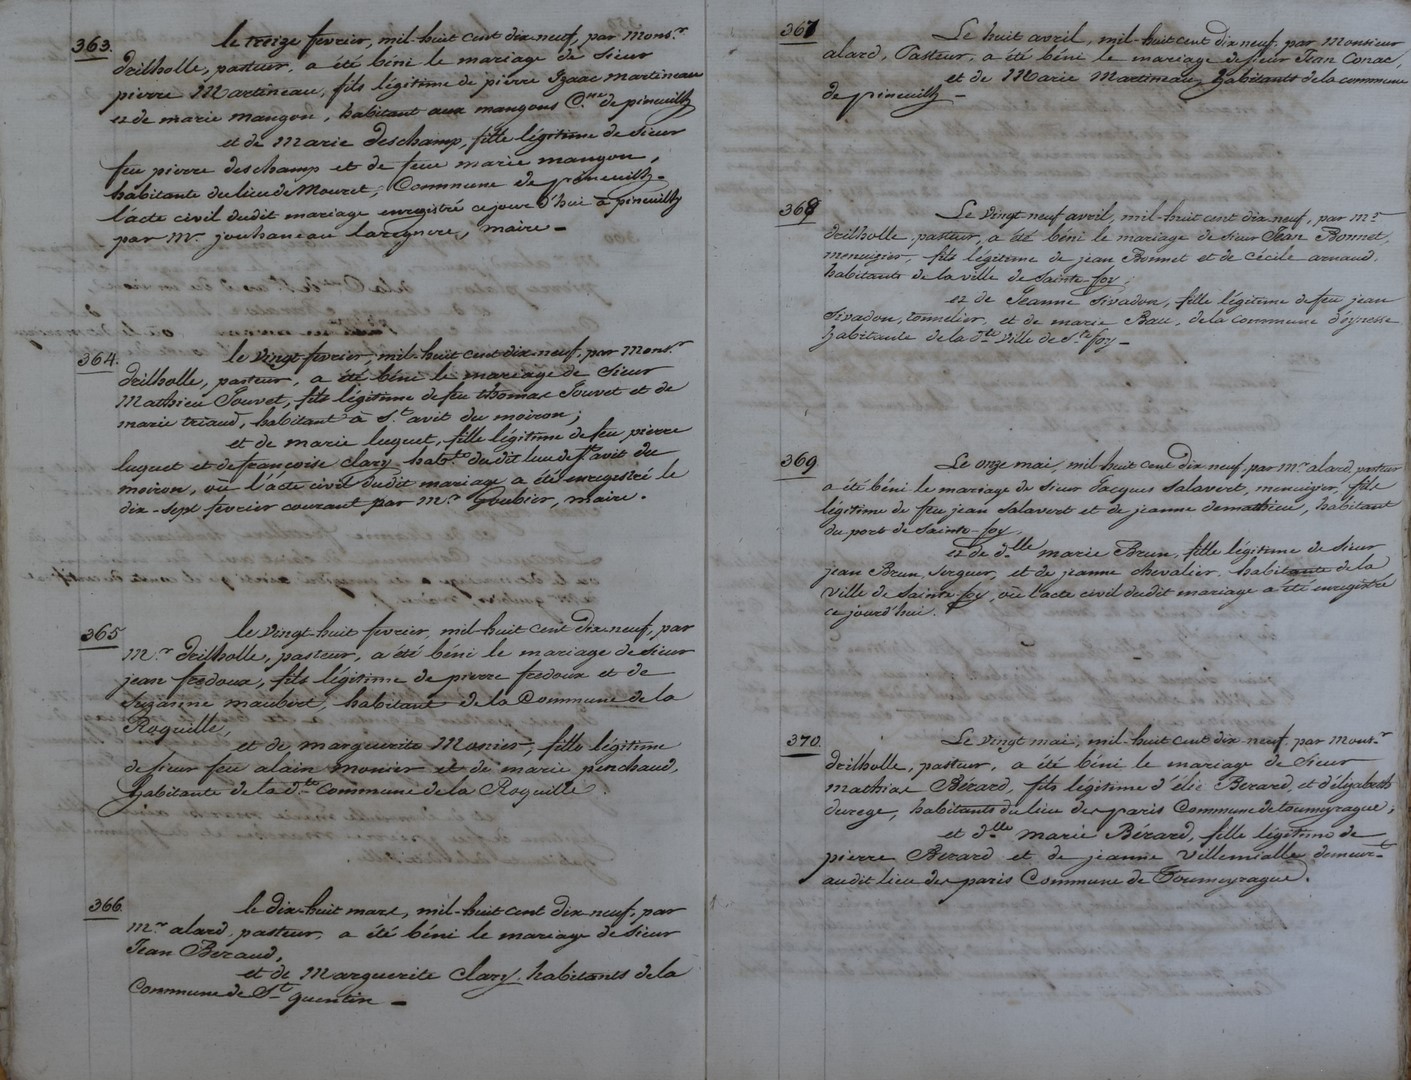 363.
le treize fevrier, mil-huit cent dix neuf, par Monsr
Drilholle, pasteur, a été béni le mariage de Sieur
pierre Martineau, fils légitime de pierre Izaac Martineau
et de marie mangon, habitant aux mangons Cne de pineuilh
et de Marie Deschamp, fille légitime de Sieur
feu pierre deschamp et de feue marie mangon,
habitante du lieu de Mouret, Commune de pineuilh.
l'acte civil dudit mariage enregistré ce jour d'hui à pineuilh
par Mr. jouhaneau laregnere, maire -
364.
le vingt fevrier, mil-huit cent dix-neuf, par Monsr
Drilholle, pasteur, a été béni le mariage de Sieur
Mathieu Jouvet, fils légitime de feu thomas Jouvet et de
marie triaud, habitant à St avit du moiron;
et de marie luguet, fille légitime de feu pierre
luguet et de françoise clary habte du dit lieu de St avit du
moiron, où l'acte civil dudit mariage a été enregistré le
dix-sept fevrier courant par Mr Goubier, maire.
365
le vingt-huit fevrier, mil-huit cent dix neuf, par
Mr Drilholle, pasteur, a été béni le mariage de Sieur
jean fredoux, fils légitime de pierre fredoux et de
Suzanne maubert, habitant de la Commune de la
Roquille,
et de marguerite Monier, fille légitime
de sieur feu alain monier et de marie penchaud,
habitante de la dte Commune de la Roquille.
366.
le dix-huit mars, mil-huit cent dix neuf, par
Mr alard, pasteur, a été béni le mariage de Sieur
Jean Beraud,
et de Marguerite Clary habitants de la
Commune de St quentin -
367
Le huit avril, mil-huit cent dix neuf par Monsieur
alard, Pasteur, a été béni le mariage de sieur Jean Conac,
et de Marie Martineau, habitants de la commune
de pineuilh -
368
Le Vingt neuf avril, mil-huit cent dix neuf, par Mr
drilholle, pasteur, a été béni le mariage de sieur Jean Bonnet,
menuisier, fils légitime de jean Bonnet et de Cécile arnaud,
habitants de la ville de Sainte-foy;
et de Jeanne Sivadon, fille légitime de feu jean
Sivadon, tonnelier, et de marie Bau, de la commune d'eynesse
habitante de la dte ville de Ste foy -
369
Le onze mai, mil-huit cent dix neuf, par Mr alard, pasteur
a été béni le mariage de sieur Jacques Salavert, menuisier, fils
légitime de feu jean Salavert et de jeanne demathieu, habitant
du port de Sainte-foy,
et de dlle marie Brun, fille légitime de Sieur
jean Brun, Serger, et de jeanne chevalier, habitante de la
Ville de Sainte-foy, où l'acte civil dudit mariage a été enregistré
ce jourd'hui.
370.
Le vingt mai, mil-huit cent dix neuf par Monsr
drilholle, pasteur, a été béni le mariage de Sieur
mathias Bérard, fils légitime d'élie Berard, et d'élizabeth
durege, habitants du lieu des paris Commune de toumeyrague;
et dlle marie Bérard, fille légitime de
pierre Berard et de jeanne Villemialle demeurt
audit lieu des paris Commune de Toumeyrague.